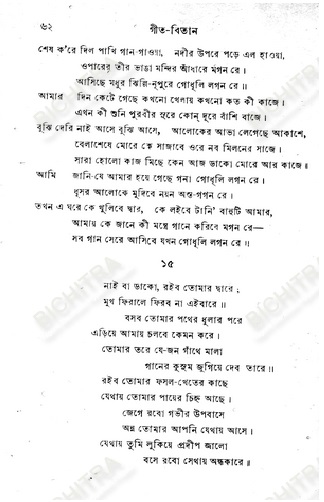 ৬২ গীত-বিতান
শেষ ক'রে দিল পাখি গান-গাওয়া, নদীর উপরে পড়ে এল হাওয়া,
ওপারের তীর ভাঙা মন্দির আঁধারে মগন রে।
আসিছে মধুর ঝিল্লি-নূপুরে গোধূলি লগন রে॥
আমার দিন কেটে গেছে কখনো খেলায় কখনো কত কী কাজে।
এখন কী শুনি পূরবীর সুরে কোন্ দূরে বাঁশি বাজে।
বুঝি দেরি নাই আসে বুঝি আসে, আলোকের আভা লেগেছে আকাশে,
বেলাশেষে মোরে কে সাজাবে ওরে নব মিলনের সাজে।
সারা হোলো কাজ মিছে কেন আজ ডাকো মোরে আর কাজে॥
আমি জানি-যে আমার হয়ে গেছে গনা গোধূলি লগন রে।
ধূসর আলোকে মুদিবে নয়ন অস্ত-গগন রে।
তখন এ ঘরে কে খুলিবে দ্বার, কে লইবে টানি' বাহুটি আমার,
আমায় কে জানে কী মন্ত্রে গানে করিবে মগন রে—
সব গান সেরে আসিবে যখন গোধূলি লগন রে॥
১৫
নাই বা ডাকো, রইব তোমার দ্বারে;
মুখ ফিরালে ফিরব না এইবারে॥
বসব তোমার পথের ধূলার পরে
এড়িয়ে আমায় চলবে কেমন করে।
তোমার তরে যে-জন গাঁথে মালা
গানের কুসুম জুগিয়ে দেবা তারে॥
রইব তোমার ফসল-খেতের কাছে
যেথায় তোমার পায়ের চিহ্ন আছে।
জেগে রবো গভীর উপবাসে
অন্ন তোমার আপনি যেথায় আসে।
যেথায় তুমি লুকিয়ে প্রদীপ জালো
বসে রবো সেথায় অন্ধকারে॥
BICHITRA